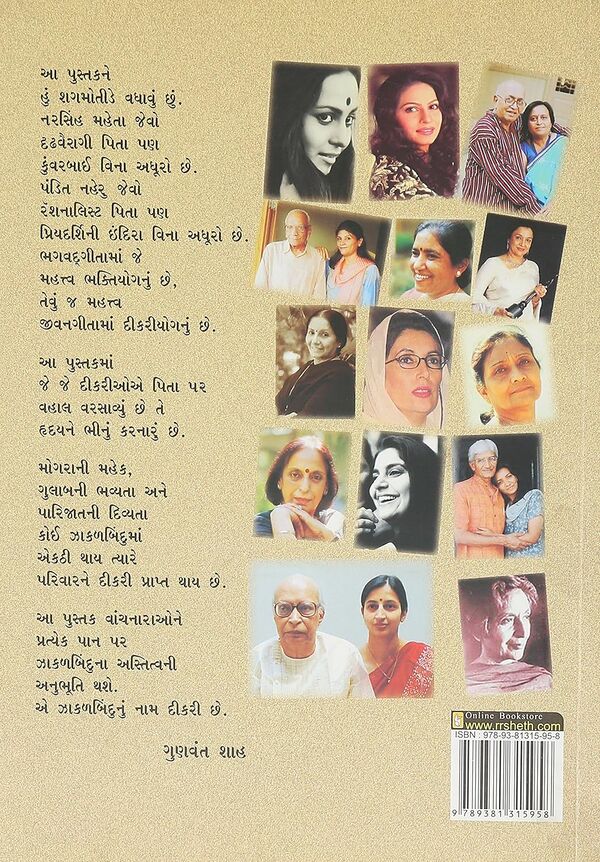 આ પુસ્તકને
હું શગમોતીડે વધાવું છું.
નરસિંહ મહેતા જેવો
દૃઢવૈરાગી પિતા પણ
કુંવરબાઈ વિના અધૂરો છે.
પંડિત નહેરુ જેવો
રૅશનાલિસ્ટ પિતા પણ
પ્રિયદર્શિની ઇંદિરા વિના અધૂરો છે.
ભગવદ્ગીતામાં જે
મહત્ત્વ ભક્તિયોગનું છે,
તેવું જ મહત્ત્વ
જીવનગીતામાં દીકરીયોગનું છે.
આ પુસ્તકમાં
જે જે દીકરીઓએ પિતા પર
વહાલ વરસાવ્યું છે તે
હૃદયને ભીનું કરનારું છે.
મોગરાની મહેક,
ગુલાબની ભવ્યતા અને
પારિજાતની દિવ્યતા
કોઈ ઝાકળબિંદુમાં
એકઠી થાય ત્યારે
પરિવારને દીકરી પ્રાપ્ત થાય છે.
આ પુસ્તક વાંચનારાઓને
પ્રત્યેક પાન પર
ઝાકળબિંદુના અસ્તિત્વની
અનુભૂતિ થશે.
એ ઝાકળબિંદુનું નામ દીકરી છે.
ગુણવંત શાહ
Online Bookstore
www.rrsheth.com
ISBN : 978-93-81315-95-8
9 789381 315958